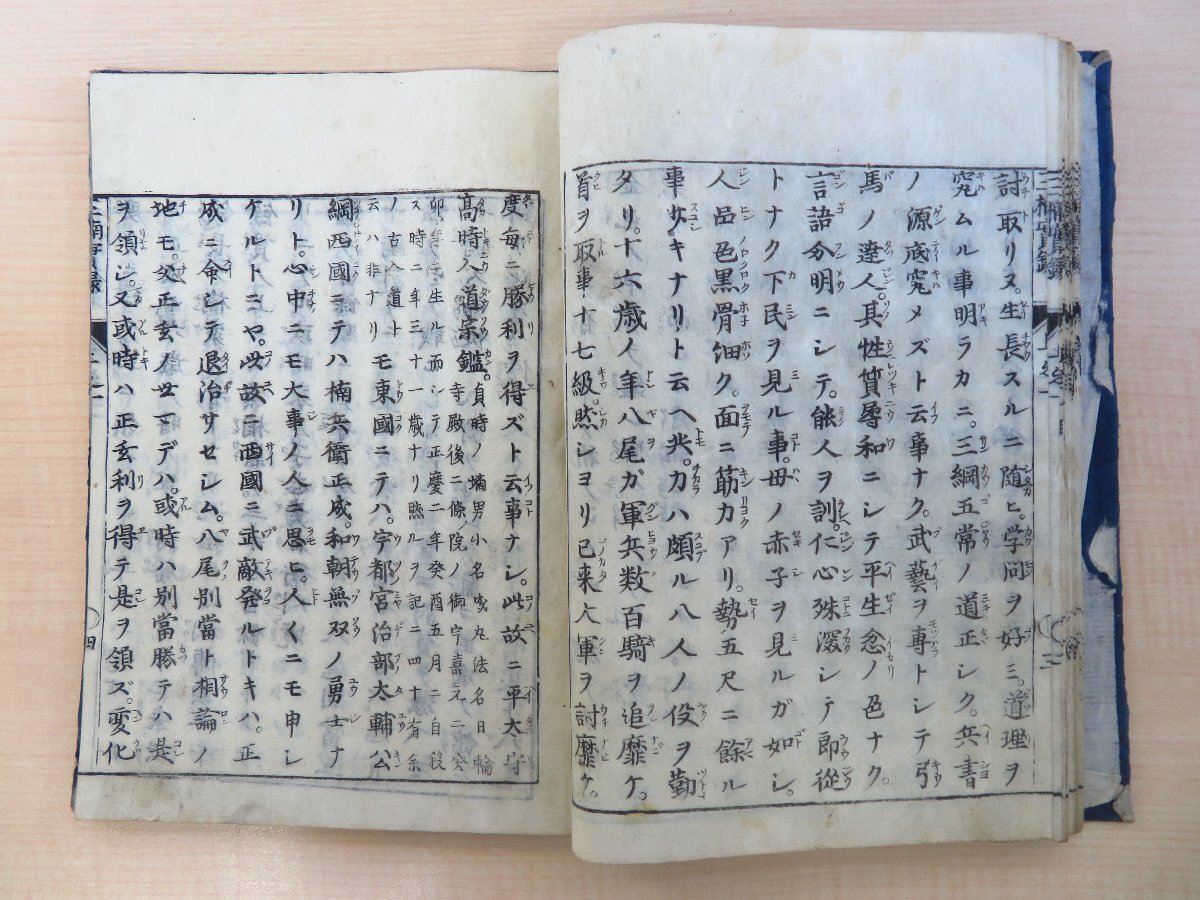 討取リヌ。生長スルニ随ヒ。学問ヲ好ミ。道理ヲ
究ムル事明ラカニ。三綱五常ノ道正シク。兵書
ノ源底究メズト云事ナク。武藝ヲ専トシテ弓
馬ノ達人。其性質辱和ニシテ平生忿ノ色ナク。
言語分明ニシテ。能人ヲ訓。仁心殊深シテ即從
トナク下民ヲ見ル事。母ノ赤子ヲ見ルガ如シ。
人品色黒骨細ク。面ニ筋力アリ。勢五尺ニ餘ル
事少キナリト云ヘ共。力ハ頗ル八人ノ役ヲ勤
タリ。十六歳ノ年八尾ガ軍兵数百騎ヲ追靡ケ。
首ヲ取事十七級。然シヨリ已来大軍ヲ討靡ケ。
度毎ニ勝利ヲ得ズト云事ナシ。此故ニ平太守
高時。入道宗鑑。
貞時ノ嫡男小名成丸法名日輪
寺殿後二條ノ院ノ御宇嘉元二癸
卯年ニ生ル而シテ正慶二年癸酉五月ニ自殺
ス時ニ年三十一歳ナリ然ルヲ記ニ四十有余
ノ古入道ト
云ハ非ナリ
モ東國ニテハ。宇都宮治部太輔公
綱。西國ニテハ楠兵衛正成。和朝無双ノ勇士ナ
リト。心中ニモ大事ノ人ニ思ヒ。人々ニモ申シ
ケルトニヤ。此故ニ西國ニ武敵発ルトキハ。正
成ニ命シテ退治サセシム。八尾別當ト相論ノ
地モ。父正玄ノ世マデハ。或時ハ別當勝テハ是
ヲ領シ。又或時ハ正玄利ヲ得テ是ヲ領ズ。変化
三楠實録
四